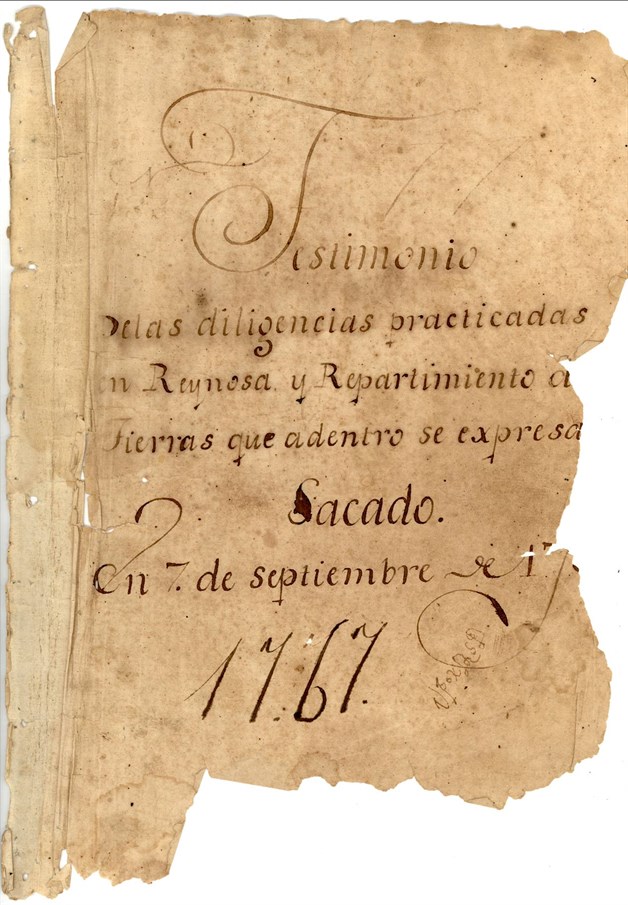 Testimonio
Delas diligencias practicadas
en Reynosa y Repartimiento d
Tierras que adentro se expresa
Sacado.
En 7. de septiembre de 17
1767.